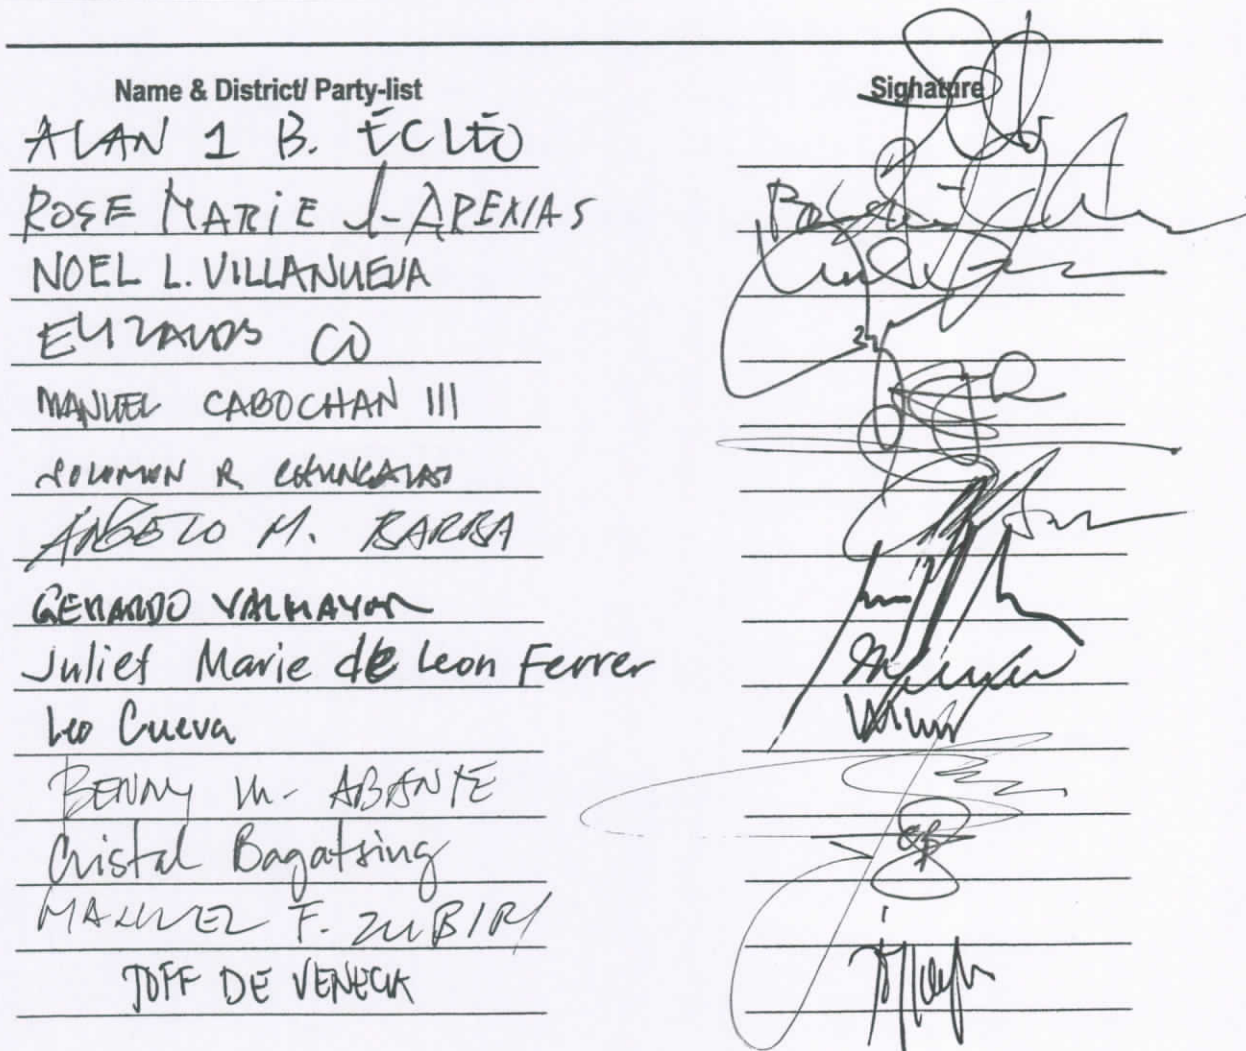 Name & District/ Party-list Signature
ALAN 1 B. ECLEO
ROSE MARIE J. ARENAS
NOEL L. VILLANUEVA
ELIZALDY CO
MANUEL CABOCHAN III
SOLOMON R. CHUNGALAO
ANGELO M. BARBA
GERARDO VALMAYOR
Juliet Marie de Leon Ferrer
Leo Cueva
BENNY M. ABANTE
Cristal Bagatsing
MANUEL F. ZUBIRI
TOFF DE VENECIA